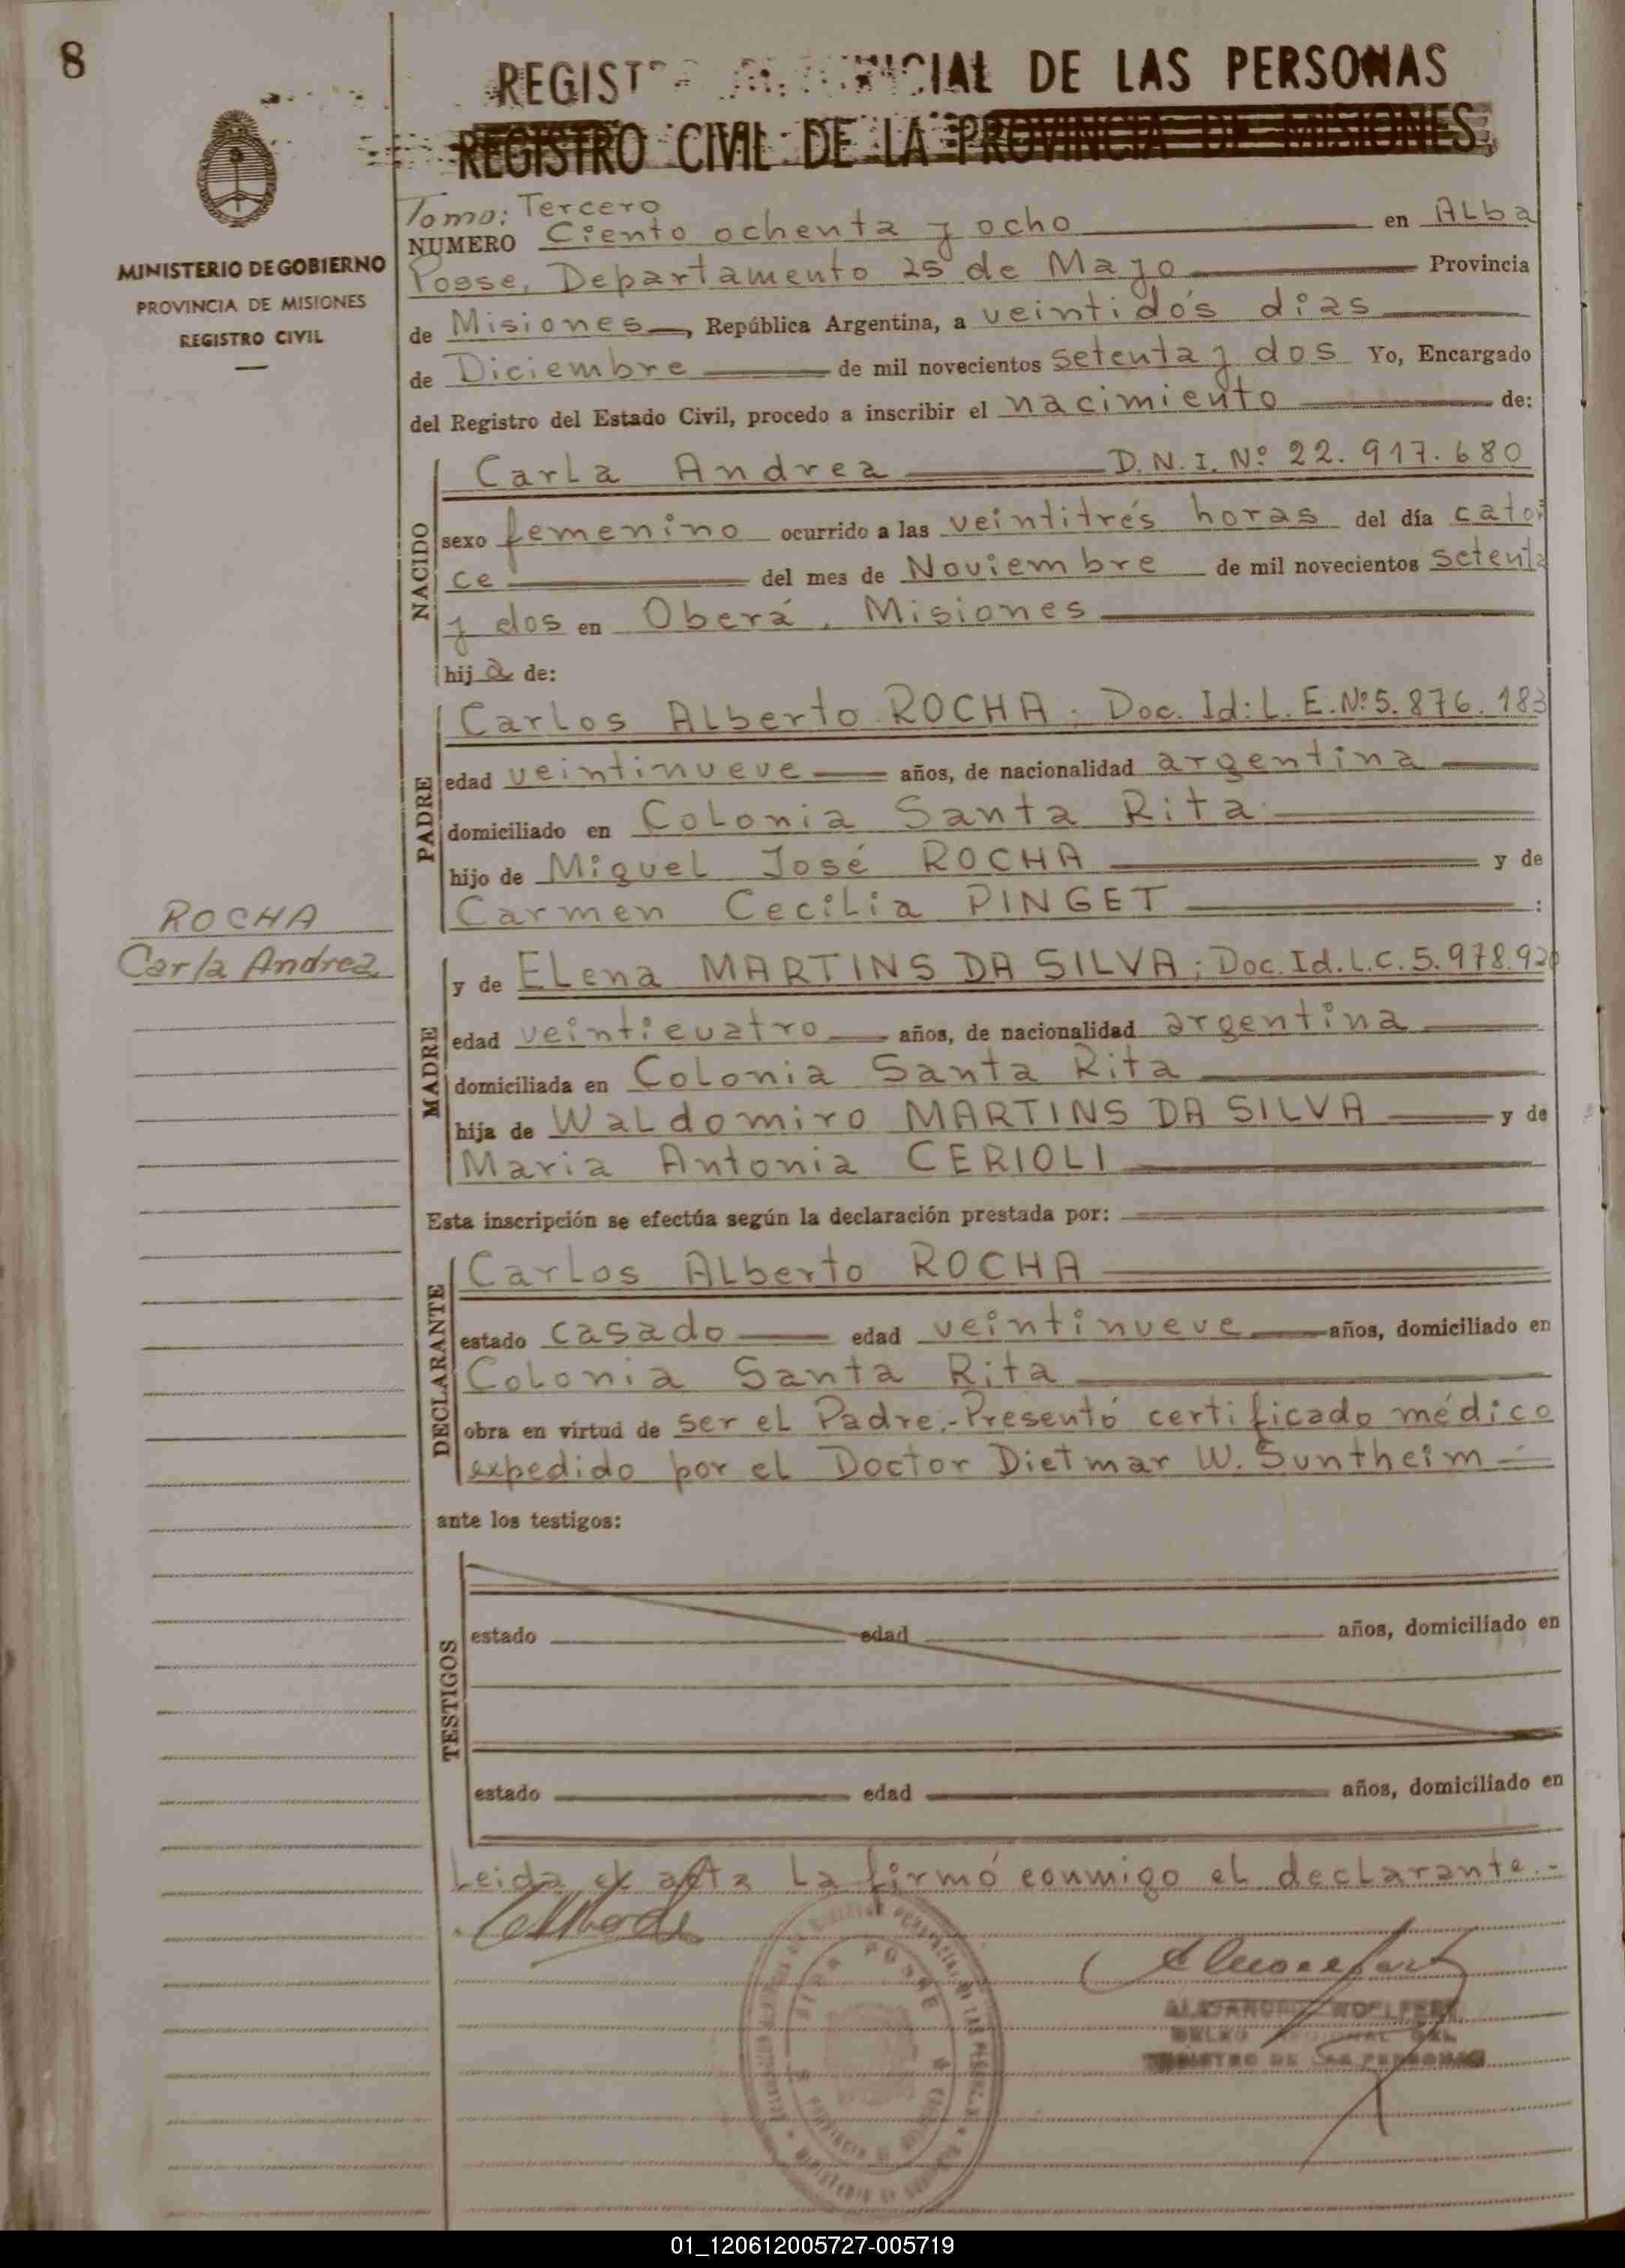 8
REGISTRO PROVINCIAL DE LAS PERSONAS
REGISTRO CIVIL DE LA PROVINCIA DE MISIONES
MINISTERIO DE GOBIERNO
PROVINCIA DE MISIONES
REGISTRO CIVIL
Tomo: Tercero
NUMERO Ciento ochenta y ocho en Alba
Posse, Departamento 25 de Mayo Provincia
de Misiones, República Argentina, a veintidós días
de Diciembre de mil novecientos setenta y dos Yo, Encargado
del Registro del Estado Civil, procedo a inscribir el nacimiento de:
NACIDO
Carla Andrea D.N.I. Nº 22.917.680
sexo femenino ocurrido a las veintitrés horas del día cator
ce del mes de Noviembre de mil novecientos setenta
y dos en Oberá, Misiones
hija de:
PADRE
Carlos Alberto ROCHA; Doc. Id: L.E.Nº5.876.183
edad veintinueve años, de nacionalidad argentina
domiciliado en Colonia Santa Rita
hijo de Miguel José ROCHA y de
Carmen Cecilia PINGET :
ROCHA
Carla Andrea
MADRE
y de Elena MARTINS DA SILVA; Doc. Id. L.C. 5.978.92
edad veinticuatro años, de nacionalidad argentina
domiciliada en Colonia Santa Rita
hija de Waldomiro MARTINS DA SILVA y de
Maria Antonia CERIOLI
Esta inscripción se efectúa según la declaración prestada por:
DECLARANTE
Carlos Alberto ROCHA
estado casado edad veintinueve años, domiciliado en
Colonia Santa Rita
obra en virtud de ser el Padre.-Presentó certificado médico
expedido por el Doctor Dietmar W. Suntheim
ante los testigos:
TESTIGOS
estado edad años, domiciliado en
estado edad años, domiciliado en
Leida el acta la firmó conmigo el declarante.-
ALBA POSSE
REGISTRO DE LAS PERSONAS
01_120612005727-005719